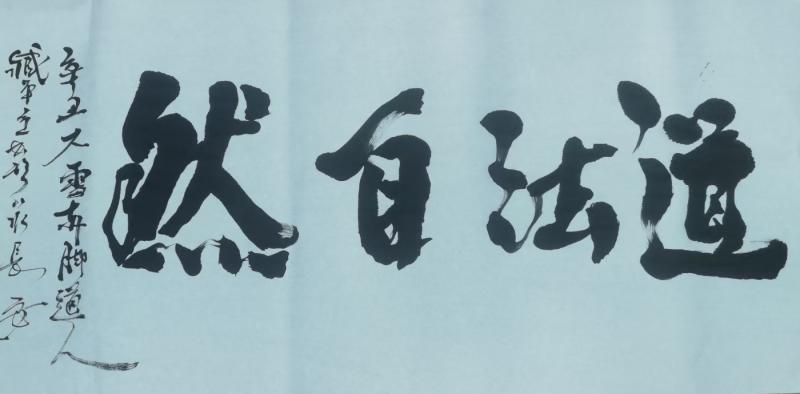 道法自然
辛丑大雪赤脚道人
臧平立书于北长京